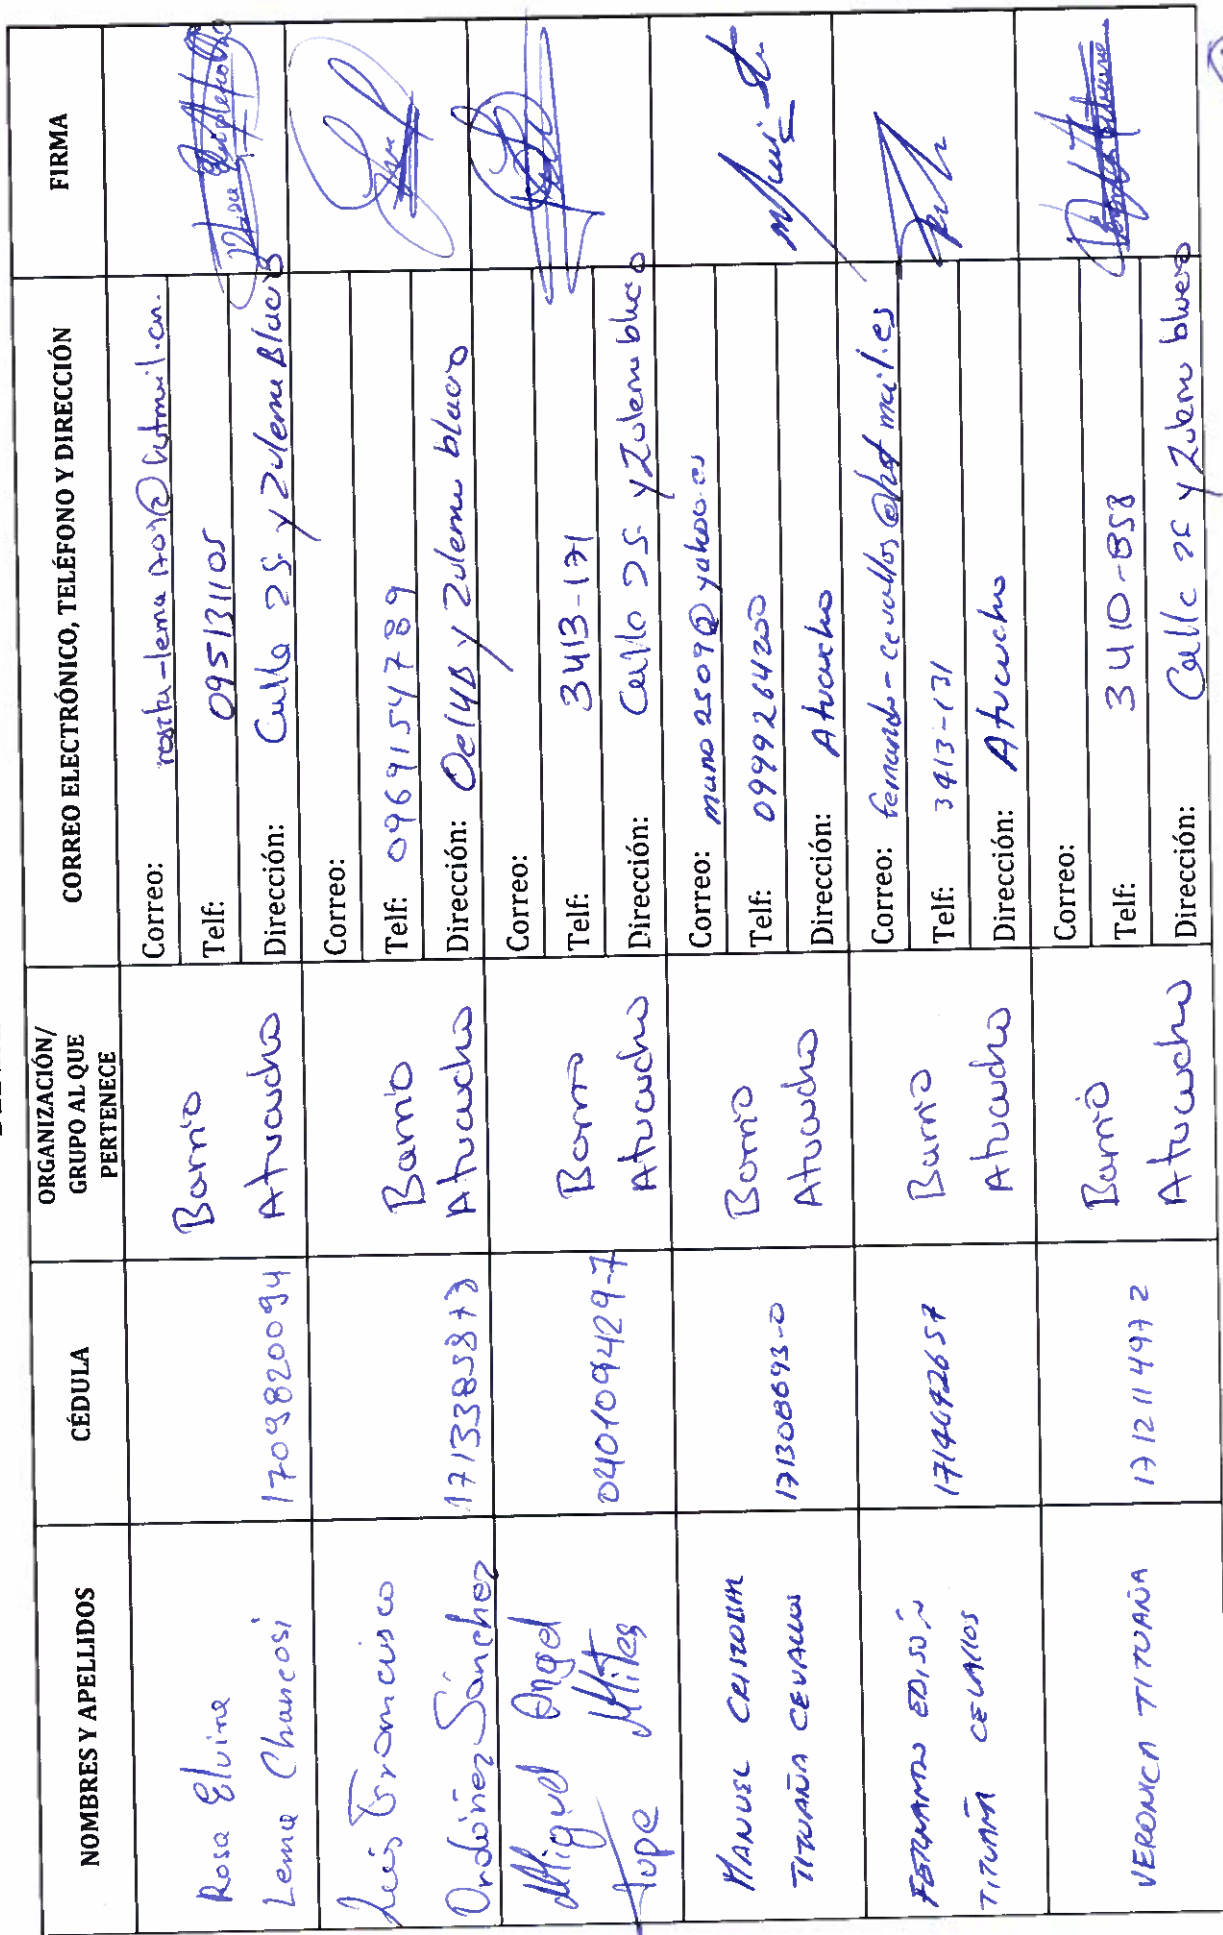 NOMBRES Y APELLIDOS
CÉDULA
ORGANIZACIÓN/
GRUPO AL QUE
PERTENECE
CORREO ELECTRÓNICO, TELÉFONO Y DIRECCIÓN
FIRMA
Rosa Elvira
Lema Chancosi
1709820094
Barrio
Atucucho
Correo: rosita-lema1709@hotmail.com.
Telf: 095131105
Dirección: Calle 25 y Zulema Blacio
Luis Francisco
Ordóñez Sánchez
1713385873
Barrio
Atucucho
Correo:
Telf: 0969154789
Dirección: Oe14B y Zulema blacio
Miguel Angel
Aupe Mites
040109429-7
Barrio
Atucucho
Correo:
Telf: 3413-171
Dirección: Calle 25 y Zulema blacio
MANUEL CRISTOBAL
TITUAÑA CEVALLOS
171308693-0
Barrio
Atucucho
Correo: mano2509@yahoo.es
Telf: 0999264200
Dirección: Atucucho
FERNANDO EDISON
TITUAÑA CEVALLOS
1714642657
Barrio
Atucucho
Correo: fernando-cevallos@hotmail.es
Telf: 3413-131
Dirección: Atucucho
VERONICA TITUAÑA
1712114972
Barrio
Atucucho
Correo:
Telf: 3410-858
Dirección: Calle 25 y Zulema blacio